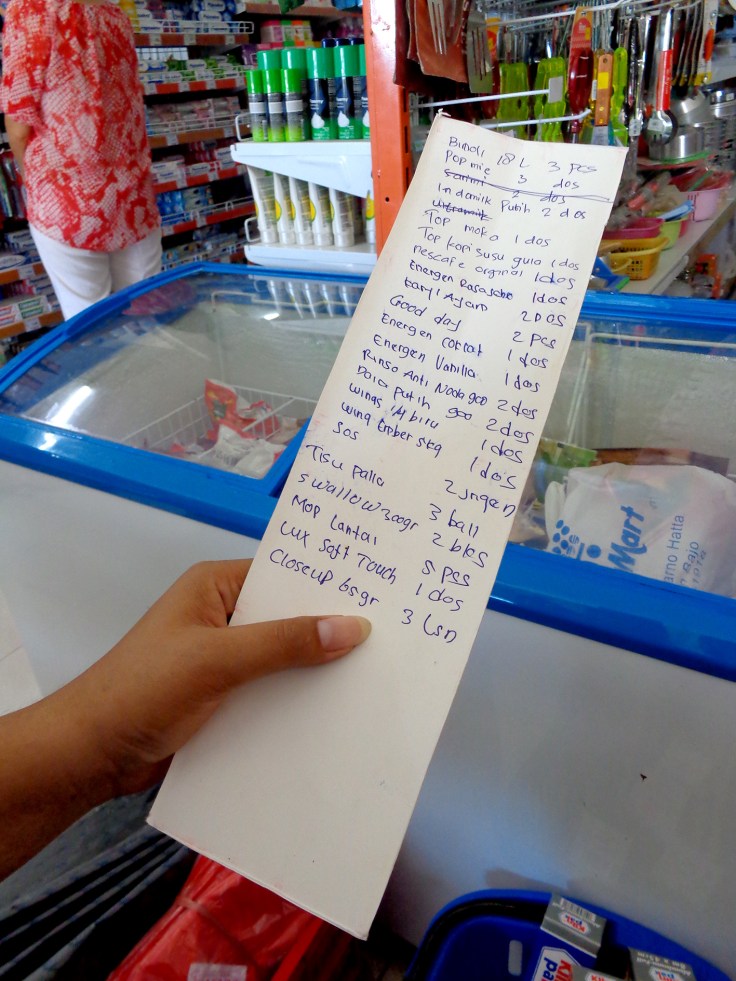 Bimoli 18 L 3 pcs
Pop mie 3 dos
Sarimi 2 dos
Indomilk Putih 2 dos
ultramilk
Top moka 1 dos
Top kopi susu gula 1 dos
nescafe orginal 1 dos
Energen 1 dos
kanji Ayam 2 Dos
Good day 2 pcs
Energen coklat 1 dos
Energen Vanilla 1 dos
Rinso Anti Noda 900 2 dos
Daia Putih 900 2 dos
wings biru 1 dos
wing Ember 1 dos
sos 2 jrgen
Tisu Pallo 3 ball
swallow 300gr 2 bks
Mop Lantai 5 pcs
Lux Soft Touch 1 dos
Closeup 65gr 3 Lsn
Mart
arno Hatta
Bajo